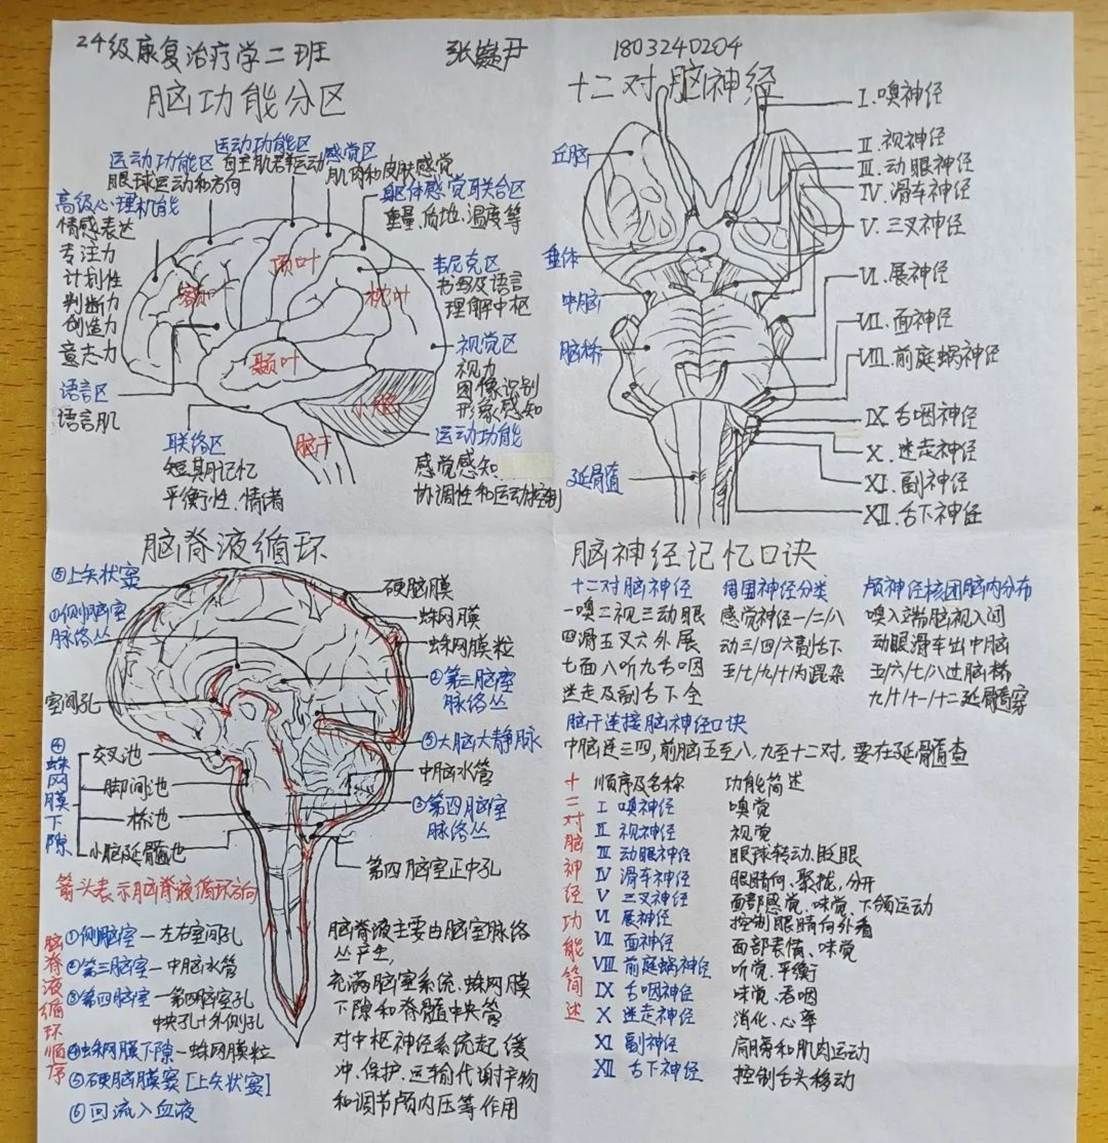 24级康复治疗学二班
张巍丹
1803240204
脑功能分区
运动功能区
自主肌若运动
运动功能区
眼球运动和方向
感觉区
肌肉和皮肤感觉
躯体感觉联合区
重量、质地、温度等
高级心理机能
情感表达
专注力
计划性
判断力
创造力
意志力
语言区
语言肌
韦尼克区
书写及语言
理解中枢
视觉区
视力
图像识别
形象感知
额叶
顶叶
枕叶
颞叶
小脑
脑干
联络区
短期记忆
平衡性、情绪
运动功能
感觉感知
协调性和运动控制
十二对脑神经
丘脑
垂体
中脑
脑桥
延骨髓
I.嗅神经
II.视神经
III.动眼神经
IV.滑车神经
V.三叉神经
VI.展神经
VII.面神经
VIII.前庭蜗神经
IX.舌咽神经
X.迷走神经
XI.副神经
XII.舌下神经
脑脊液循环
⑤上矢状窦
①侧脑室
脉络丛
室间孔
④蛛网膜下隙
交叉池
脚间池
桥池
小脑延髓池
硬脑膜
蛛网膜
蛛网膜粒
②第三脑室
脉络丛
⑤大脑大静脉
中脑水管
③第四脑室
脉络丛
第四脑室正中孔
箭头表示脑脊液循环方向
脑脊液循环顺序
①侧脑室—左右室间孔
②第三脑室—中脑水管
③第四脑室—第四脑室孔
中央孔+外侧孔
④蛛网膜下隙—蛛网膜粒
⑤硬脑膜窦[上矢状窦]
⑥回流入血液
脑脊液主要由脑室脉络
丛产生,
充满脑室系统、蛛网膜
下隙和脊髓中央管
对中枢神经系统起缓
冲、保护、运输代谢产物
和调节颅内压等作用
脑神经记忆口诀
十二对脑神经
一嗅二视三动眼
四滑五叉六外展
七面八听九舌咽
迷走及副舌下全
周围神经分类
感觉神经一/二/八
动三/四/六副舌下
五/七/九/十为混杂
颅神经核团脑内分布
嗅入端脑视入间
动眼滑车出中脑
五/六/七/八过脑桥
九/十/十一/十二延髓穿
脑干连接脑神经口诀
中脑连三四,前脑五至八,九至十二对,要在延骨髓查
十二对脑神经功能简述
顺序及名称 功能简述
I 嗅神经 嗅觉
II 视神经 视觉
III 动眼神经 眼球转动、眨眼
IV 滑车神经 眼睛向、聚拢,分开
V 三叉神经 面部感觉、味觉、下颌运动
VI 展神经 控制眼睛向外看
VII 面神经 面部表情、味觉
VIII 前庭蜗神经 听觉、平衡
IX 舌咽神经 味觉、吞咽
X 迷走神经 消化、心率
XI 副神经 肩膀和肌肉运动
XII 舌下神经 控制舌头移动